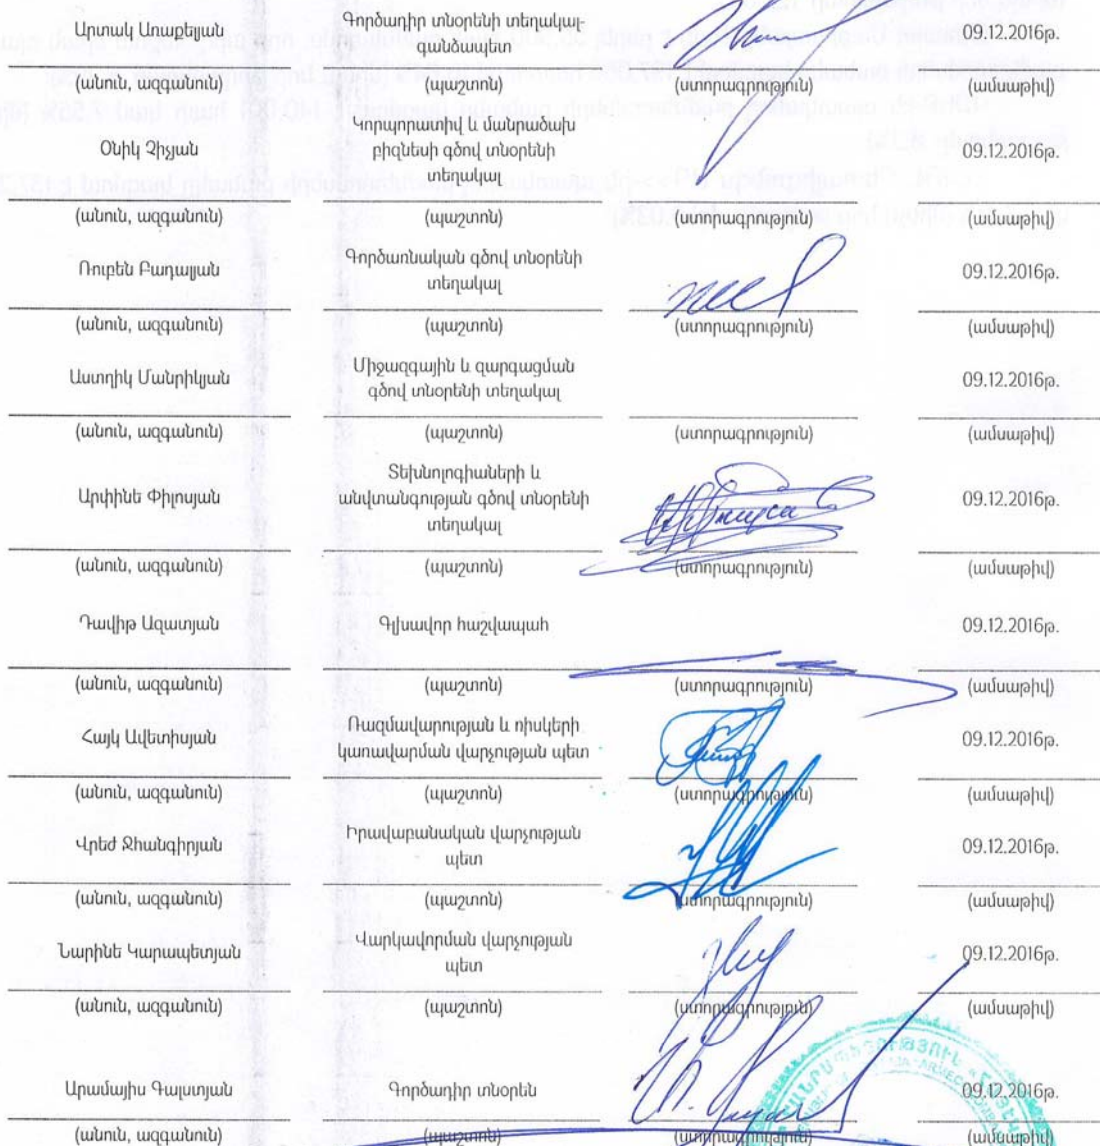 Արտակ Առաքելյան Գործադիր տնօրենի տեղակալ- 09.12.2016թ.
գանձապետ
(անուն, ազգանուն) (պաշտոն) (ստորագրություն) (ամսաթիվ)
Օնիկ Չիչյան Կորպորատիվ և մանրածախ 09.12.2016թ.
բիզնեսի գծով տնօրենի
տեղակալ
(անուն, ազգանուն) (պաշտոն) (ստորագրություն) (ամսաթիվ)
Ռուբեն Բադալյան Գործառնական գծով տնօրենի 09.12.2016թ.
տեղակալ
(անուն, ազգանուն) (պաշտոն) (ստորագրություն) (ամսաթիվ)
Աստղիկ Մանրիկյան Միջազգային և զարգացման 09.12.2016թ.
գծով տնօրենի տեղակալ
(անուն, ազգանուն) (պաշտոն) (ստորագրություն) (ամսաթիվ)
Արփինե Փիլոսյան Տեխնոլոգիաների և 09.12.2016թ.
անվտանգության գծով տնօրենի
տեղակալ
(անուն, ազգանուն) (պաշտոն) (ստորագրություն) (ամսաթիվ)
Դավիթ Ազատյան Գլխավոր հաշվապահ 09.12.2016թ.
(անուն, ազգանուն) (պաշտոն) (ստորագրություն) (ամսաթիվ)
Հայկ Ավետիսյան Ռազմավարության և ռիսկերի 09.12.2016թ.
կառավարման վարչության պետ
(անուն, ազգանուն) (պաշտոն) (ստորագրություն) (ամսաթիվ)
Վրեժ Ջհանգիրյան Իրավաբանական վարչության 09.12.2016թ.
պետ
(անուն, ազգանուն) (պաշտոն) (ստորագրություն) (ամսաթիվ)
Նարինե Կարապետյան Վարկավորման վարչության 09.12.2016թ.
պետ
(անուն, ազգանուն) (պաշտոն) (ստորագրություն) (ամսաթիվ)
Արամայիս Գալստյան Գործադիր տնօրեն 09.12.2016թ.
(անուն, ազգանուն) (պաշտոն) (ստորագրություն) (ամսաթիվ)